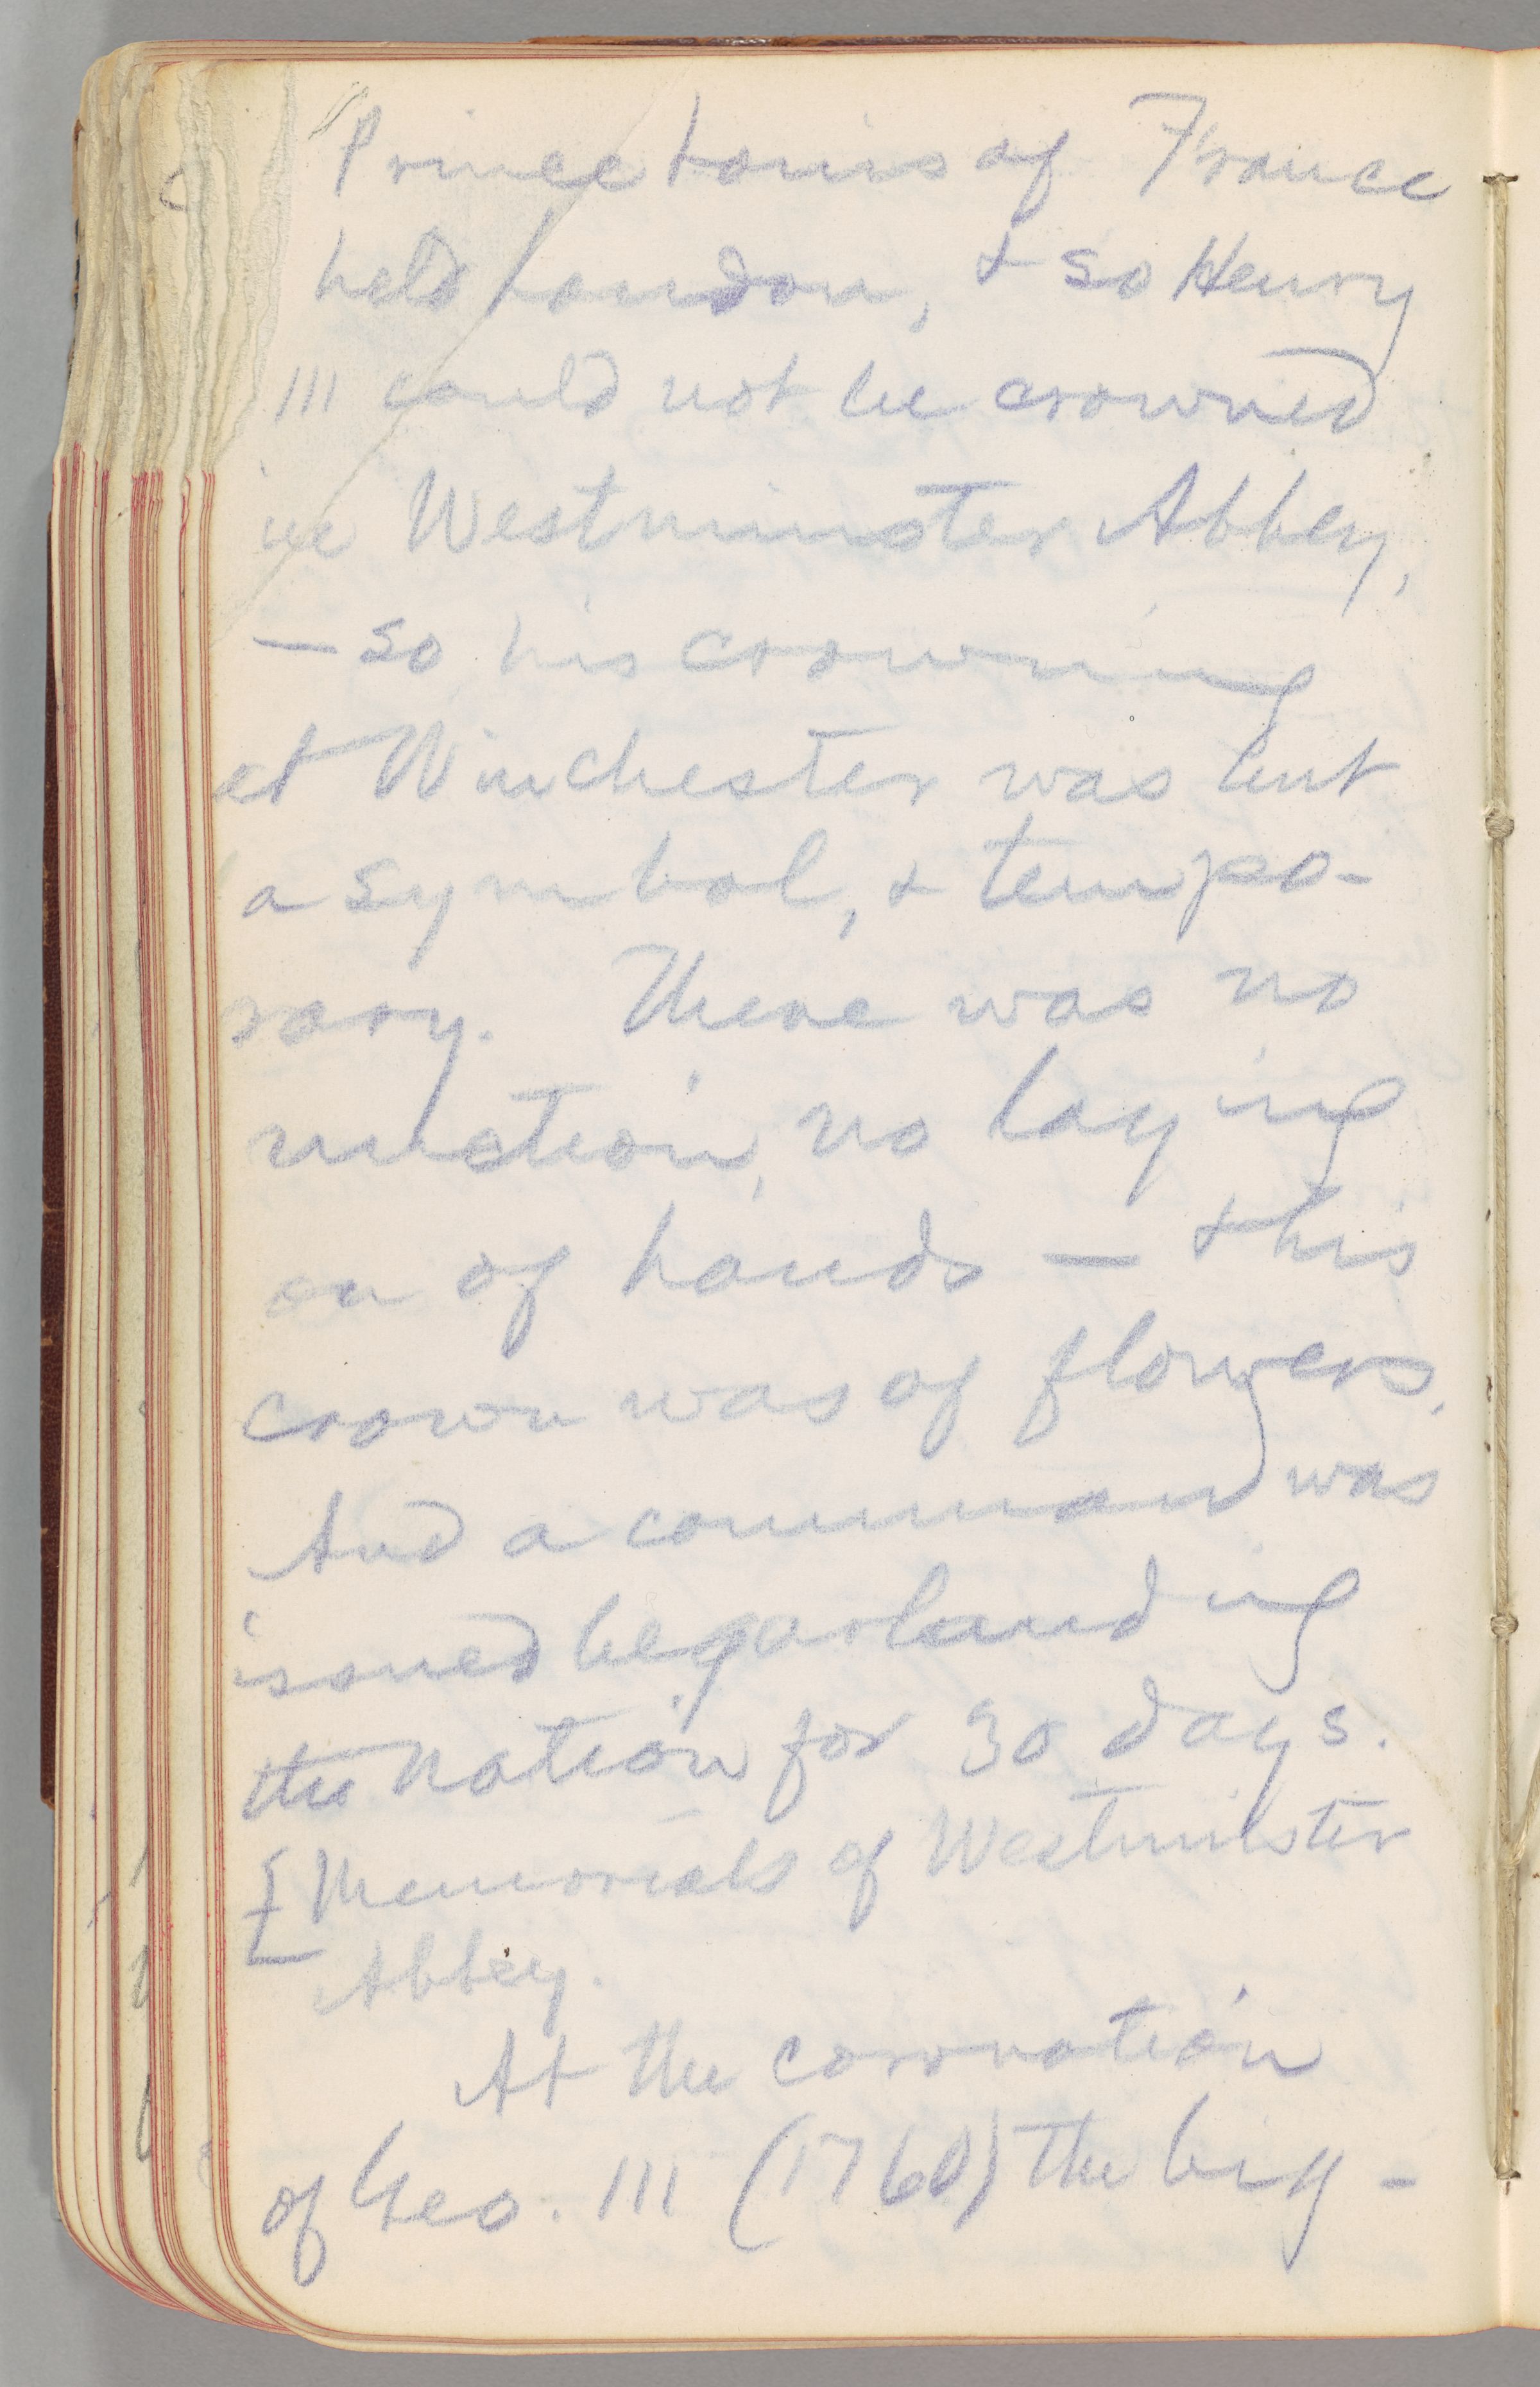 Prince Louis of France
held London, & so Henry
III could not be crowned
in Westminster Abbey,
— so his crowning
at Winchester was but
a symbol, & tempo-
rary. There was no
unction, no laying
on of hands — & his
crown was of flowers.
And a command was
issued begarlanding
the nation for 30 days.
[Memorials of Westminster
Abbey.
At the coronation
of Geo. III (1760) the big-